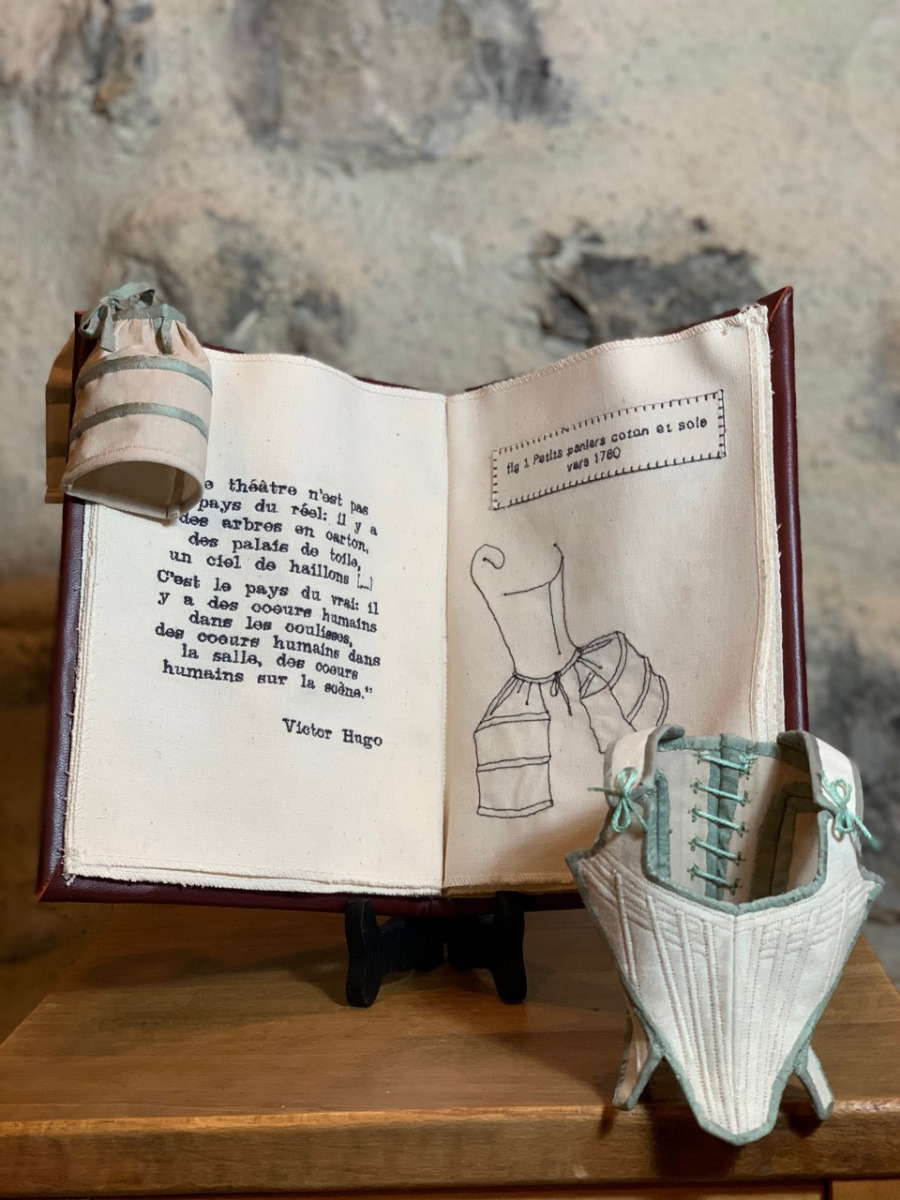 e théâtre n'est pas
pays du réel: il y a
des arbres en carton,
des palais de toile,
un ciel de haillons [...]
C'est le pays du vrai: il
y a des coeurs humains
dans les coulisses,
des coeurs humains dans
la salle, des coeurs
humains sur la scène."
Victor Hugo
fig 1 Petits paniers coton et soie
vers 1780